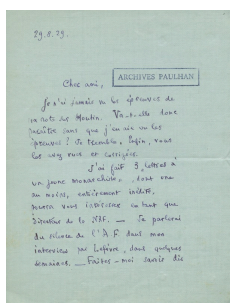 29.8.29.
Cher ami,
ARCHIVES PAULHAN
Je n'ai jamais vu les épreuves de
ma note sur Moulin. Va-t-elle donc
paraître sans que j'en aie vu les
épreuves ? Je tremble. Enfin, vous
les avez vues et corrigées.
J'ai fait 3 lettres à
un jeune monarchiste, dont une
au moins, entièrement inédite,
pourra vous intéresser en tant que
directeur de la NRF. — Je parlerai
du silence de l'A F dans mon
interview par Lefèvre, dans quelques
semaines. — Faites-moi savoir dès